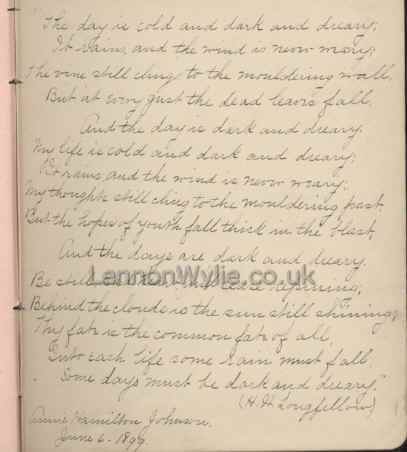 "The day is cold and dark and dreary;
It rains, and the wind is never weary;
The vine still clings to the mouldering wall,
But at every gust the dead leaves fall,
And the day is dark and dreary.
My life is cold and dark and dreary;
It rains and the wind is never weary;
My thoughts still cling to the mouldering past,
But the hopes of youth fall thick in the blast,
And the days are dark and dreary.
Be still cease repining;
Behind the clouds is the sun still shining;
Thy fate is the common fate of all,
Into each life some rain must fall,
Some days must be dark and dreary."
(H. H. Longfellow)
Anne Hamilton Johnson.
June 6. 1899.
LennonWylie.co.uk